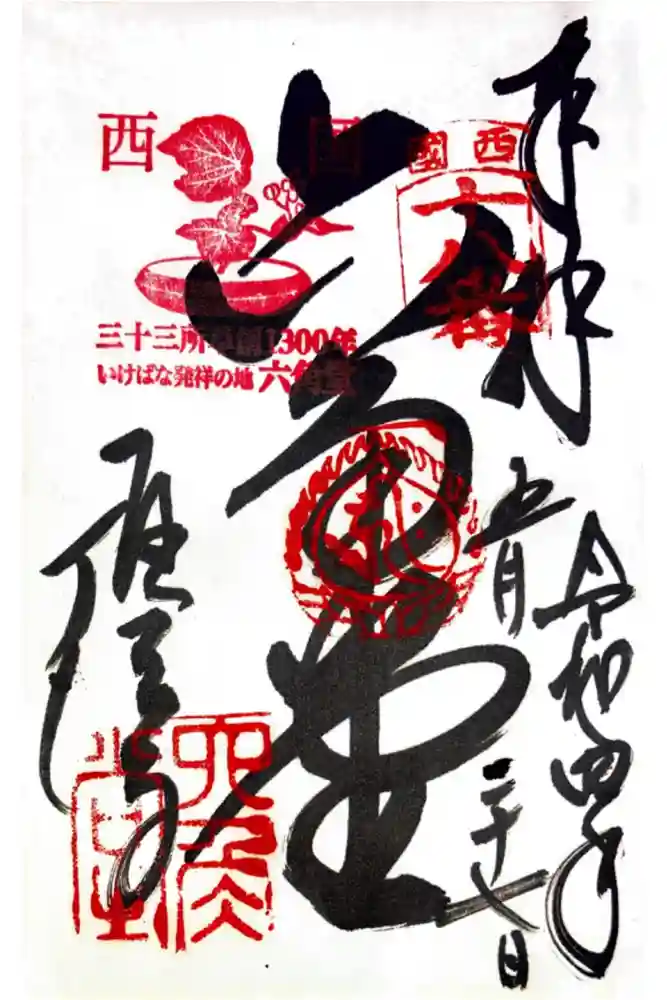 奉拝
令和四年
五月
二十七日
西國
十八番
六角堂
西国
三十三所草創1300年
いけばな発祥の地 六角堂
六角堂